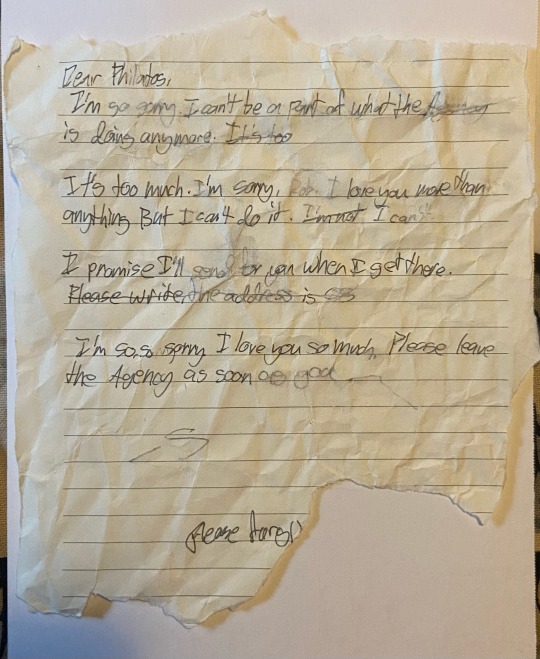 Dear Philatos,
I'm so sorry. I can't be a part of what the Agency
is doing anymore. It's too
It's too much. I'm sorry, I love you more than
anything But I can't do it. I'm not I can't
I promise I'll send for you when I get there.
Please write, the address is
I'm so, so sorry I love you so much, Please leave
the Agency as soon as
Please